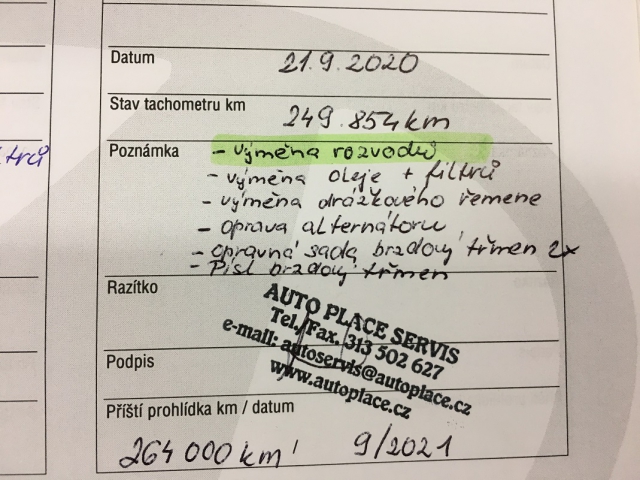 Datum 21.9.2020
Stav tachometru km 249.854km
trů
Poznámka - výměna rozvodů
- výměna oleje + filtrů
- výměna drážkového řemene
- oprava alternátoru
- opravná sada brzdový třmen 2x
- Píst brzdový třmen
Razítko
AUTO PLACE SERVIS
Tel./Fax. 313 502 627
e-mail: autoservis@autoplace.cz
www.autoplace.cz
Podpis
Příští prohlídka km / datum
264 000 km 9/2021